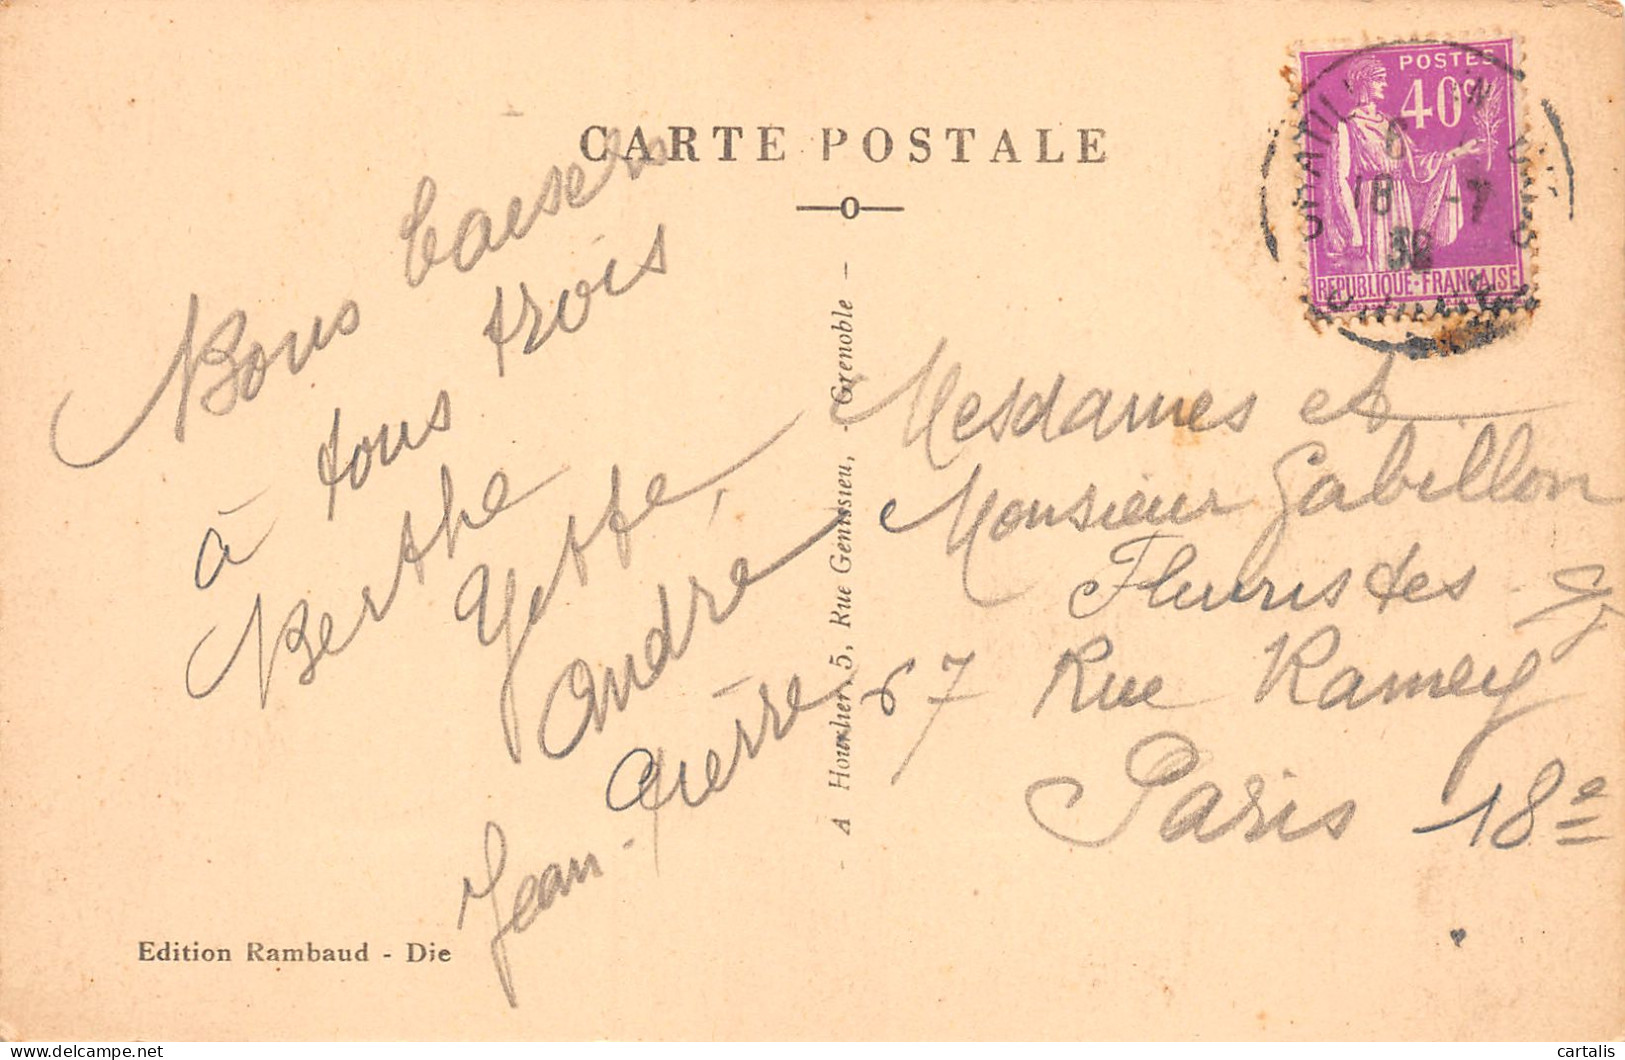 CARTE POSTALE
POSTES
40c
6
18 -7
38
REPUBLIQUE-FRANÇAISE
Bons baisers
à tous trois
Berthe
Yette,
André
Jean-Pierre
- A Hourlier, 5, Rue Genissieu, - Grenoble -
Mesdames et
Monsieur Gabillon
Fleuristes
67 Rue Ramey
Paris 18e
Edition Rambaud - Die
delcampe.net
cartalis